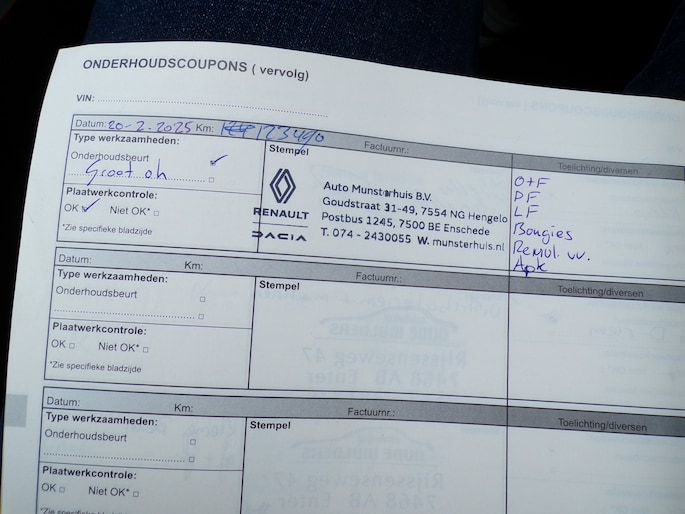 ONDERHOUDSCOUPONS ( vervolg)
VIN:
Datum: 20-2-2025 Km: 123490 Factuurnr.: Toelichting/diversen
Type werkzaamheden:
Onderhoudsbeurt ✓
Groot oh
Plaatwerkcontrole:
OK ✓ Niet OK*
*Zie specifieke bladzijde
Stempel
RENAULT
DACIA
Auto Munsterhuis B.V.
Goudstraat 31-49, 7554 NG Hengelo
Postbus 1245, 7500 BE Enschede
T. 074 - 2430055 W. munsterhuis.nl
O+F
PF
LF
Bougies
Remvl. vv.
Apk
Datum: Km: Factuurnr.: Toelichting/diversen
Type werkzaamheden:
Onderhoudsbeurt
Plaatwerkcontrole:
OK Niet OK*
*Zie specifieke bladzijde
Stempel
Datum: Km: Factuurnr.: Toelichting/diversen
Type werkzaamheden:
Onderhoudsbeurt
Plaatwerkcontrole:
OK Niet OK*
*Zie specifieke bladzijde
Stempel